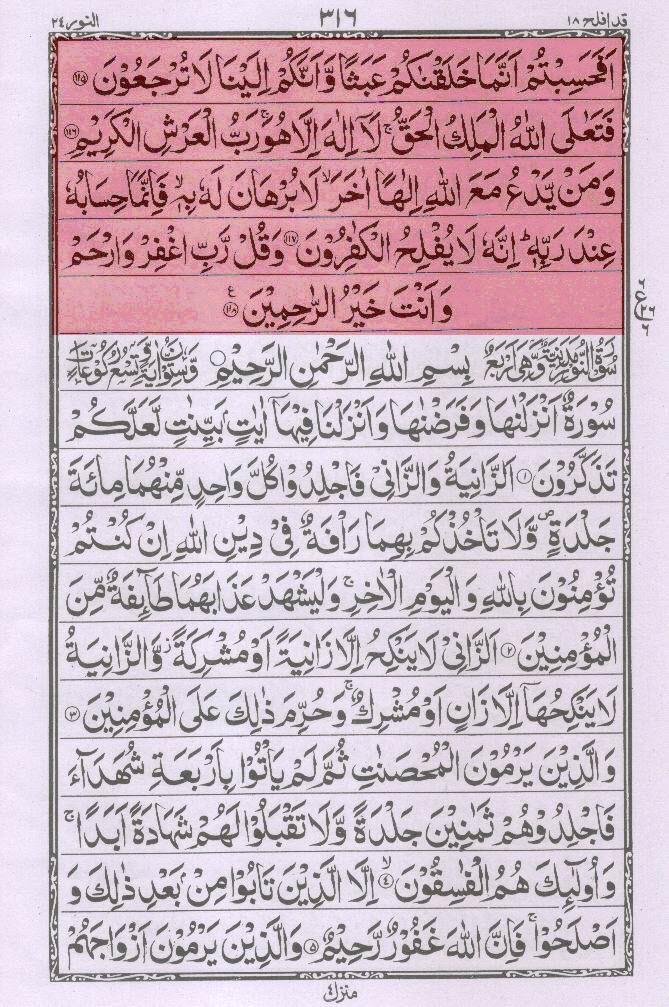 قد افلح ١٨ ٣١٦ النور ٢٤
اَفَحَسِبْتُمْ اَنَّمَا خَلَقْنٰكُمْ عَبَثًا وَّاَنَّكُمْ اِلَيْنَا لَا تُرْجَعُوْنَ ۝١١٥
فَتَعٰلَى اللّٰهُ الْمَلِكُ الْحَقُّ ۚ لَاۤ اِلٰهَ اِلَّا هُوَ ۚ رَبُّ الْعَرْشِ الْكَرِيْمِ ۝١١٦
وَمَنْ يَّدْعُ مَعَ اللّٰهِ اِلٰهًا اٰخَرَ ۙ لَا بُرْهَانَ لَهٗ بِهٖ ۙ فَاِنَّمَا حِسَابُهٗ
عِنْدَ رَبِّهٖ ؕ اِنَّهٗ لَا يُفْلِحُ الْكٰفِرُوْنَ ۝١١٧ وَقُلْ رَّبِّ اغْفِرْ وَارْحَمْ
وَاَنْتَ خَيْرُ الرّٰحِمِيْنَ ۝١١٨
بِسْمِ اللّٰهِ الرَّحْمٰنِ الرَّحِيْمِ
سُوْرَةٌ اَنْزَلْنٰهَا وَفَرَضْنٰهَا وَاَنْزَلْنَا فِيْهَاۤ اٰيٰتٍۭ بَيِّنٰتٍ لَّعَلَّكُمْ
تَذَكَّرُوْنَ ۝١ اَلزَّانِيَةُ وَالزَّانِيْ فَاجْلِدُوْا كُلَّ وَاحِدٍ مِّنْهُمَا مِائَةَ
جَلْدَةٍ ۪ وَّلَا تَاْخُذْكُمْ بِهِمَا رَاْفَةٌ فِيْ دِيْنِ اللّٰهِ اِنْ كُنْتُمْ
تُؤْمِنُوْنَ بِاللّٰهِ وَالْيَوْمِ الْاٰخِرِ ۚ وَلْيَشْهَدْ عَذَابَهُمَا طَآئِفَةٌ مِّنَ
الْمُؤْمِنِيْنَ ۝٢ اَلزَّانِيْ لَا يَنْكِحُ اِلَّا زَانِيَةً اَوْ مُشْرِكَةً ؗ وَّالزَّانِيَةُ
لَا يَنْكِحُهَاۤ اِلَّا زَانٍ اَوْ مُشْرِكٌ ۚ وَحُرِّمَ ذٰلِكَ عَلَى الْمُؤْمِنِيْنَ ۝٣
وَالَّذِيْنَ يَرْمُوْنَ الْمُحْصَنٰتِ ثُمَّ لَمْ يَاْتُوْا بِاَرْبَعَةِ شُهَدَآءَ
فَاجْلِدُوْهُمْ ثَمٰنِيْنَ جَلْدَةً وَّلَا تَقْبَلُوْا لَهُمْ شَهَادَةً اَبَدًا ۚ
وَاُولٰٓئِكَ هُمُ الْفٰسِقُوْنَ ۝٤ۙ اِلَّا الَّذِيْنَ تَابُوْا مِنْۢ بَعْدِ ذٰلِكَ وَ
اَصْلَحُوْا ۚ فَاِنَّ اللّٰهَ غَفُوْرٌ رَّحِيْمٌ ۝٥ وَالَّذِيْنَ يَرْمُوْنَ اَزْوَاجَهُمْ
منزل ٤